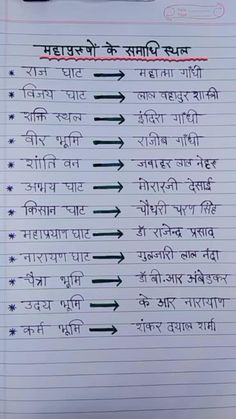 महापुरुषों के समाधि स्थल
* राज घाट → महात्मा गाँधी
* विजय घाट → लाल बहादुर शास्त्री
* शक्ति स्थल → इंदिरा गाँधी
* वीर भूमि → राजीव गाँधी
* शांति वन → जवाहर लाल नेहरू
* अभय घाट → मोरारजी देसाई
* किसान घाट → चौधरी चरण सिंह
* महाप्रयाण घाट → डॉ राजेन्द्र प्रसाद
* नारायण घाट → गुलजारी लाल नंदा
* चैत्रा भूमि → डॉ बी.आर अंबेडकर
* उदय भूमि → के आर नारायण
* कर्म भूमि → शंकर दयाल शर्मा